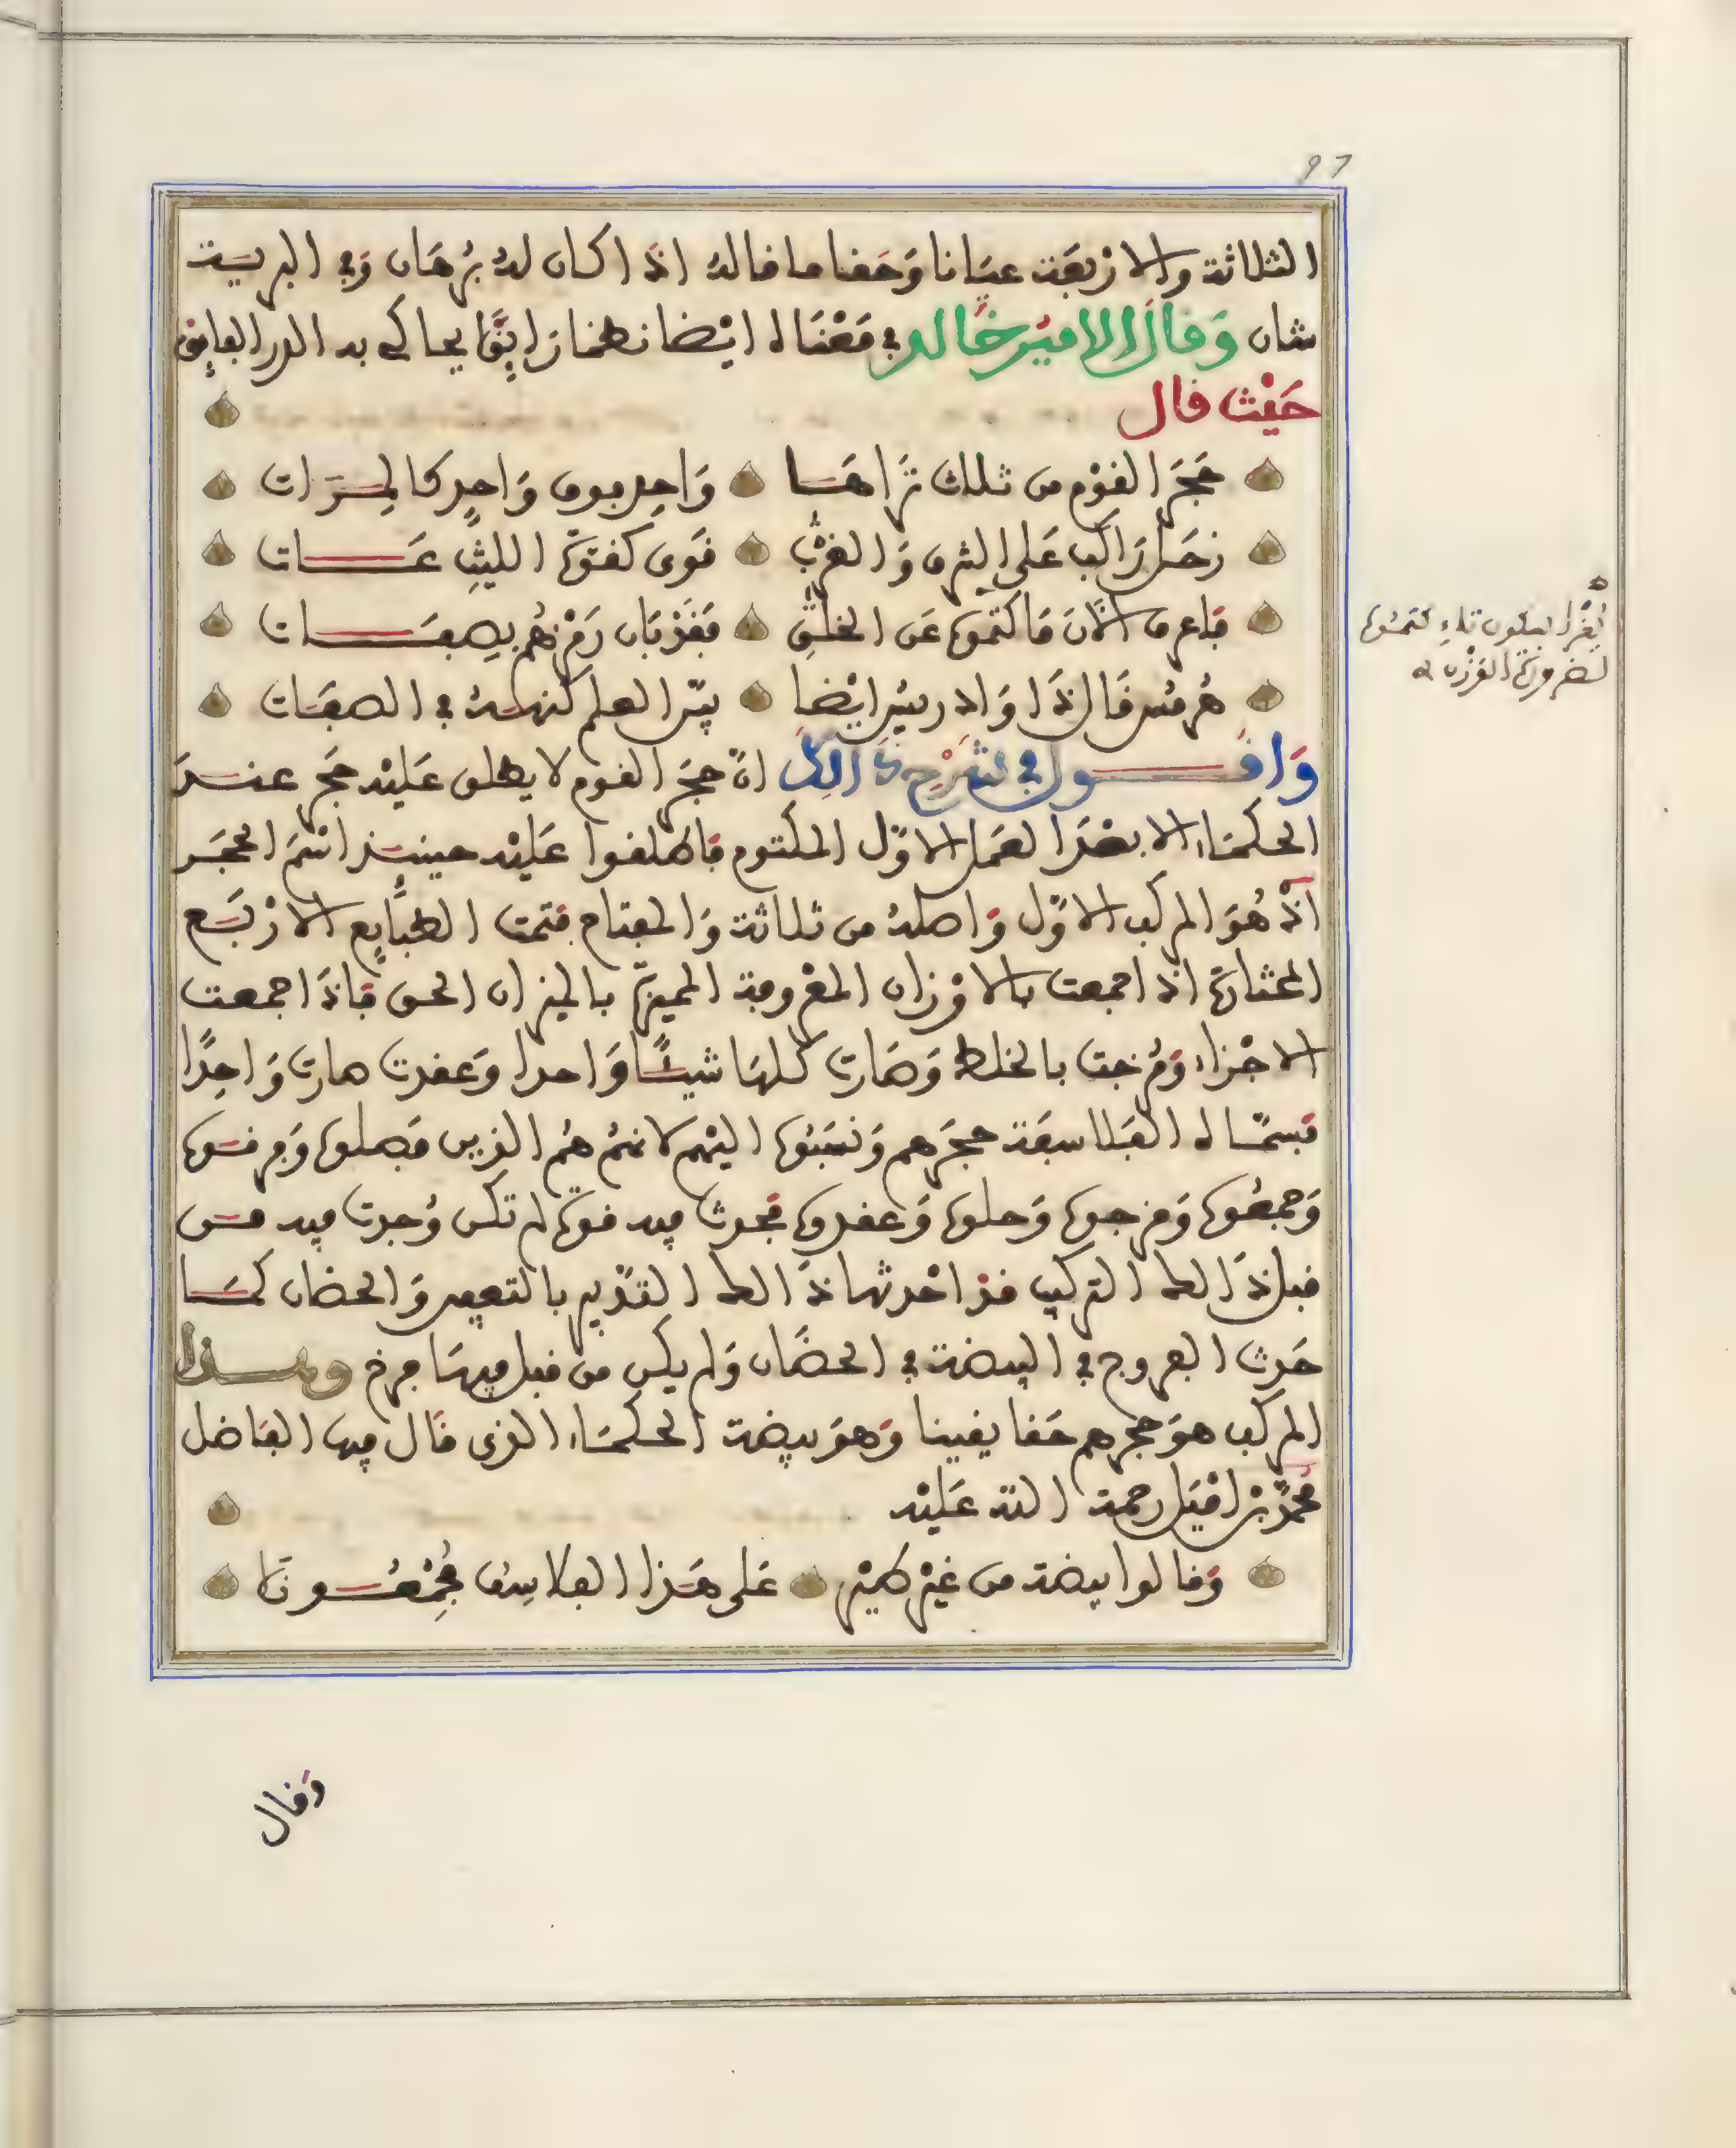 97
الثلاثة والاربعة عيانا وحقا ما قاله اذا كان له برهان وفي البرية
شان وقال الامير خالد في معناه ايضا نظما رايقا يحاكي به الدر الفايق
حيث قال
حجر القوم من ثلاث تراها واحد فوق واحد كالمرات
زحل راكب على الشرق والغرب قوى كقوة الليث عات
فاعرف الان ما كتموه عن الخلق ففزبان رمزهم بصفات
هرمس قال ذا واد ريس ايضا سر العلم كنهه في الصفات
واقول في شرح ذالك ان حجر القوم لا يطلق عليه حجر عند
الحكماء الا بعد العمل الاول المكتوم فاطلقوا عليه حينيذ اسم الحجر
اذ هو المركب الاول واصله من ثلاثة والمفتاح فتمت الطبايع الاربع
المختارة اذا اجمعت بالاوزان المعروفة المميزة بالميزان الحق فاذا اجمعت
الاجزاء ومزجت بالخلط وصارت كلها شيئا واحدا وعقدت صارت واحدا
فسماه الفلاسفة حجرهم ونسبوه اليهم لانهم هم الذين فصلوه وفرقوه
وجمعوه ومزجوه وحلوه وعقدوه فحدث فيه قوة لم تكن وجدت فيه من
قبل ذالك التركيب قد احدثها ذالك التدبير بالتعفين والحضان كما
حدث الفروج في البيضة في الحضان ولم يكن من قبل فيها فرخ وهذا
المركب هو حجرهم حقا يقينا وهو بيضة الحكماء الذى قال فيها الفاضل
محمد بن اميل رحمة الله عليه
وقالوا بيضة من غير طير على هذا الفلاسف مجمعونا
يقرا بسكون تاء كتموه
لضرورة الوزن
وقال